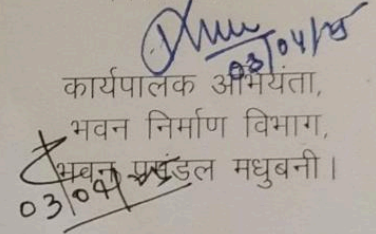 03/04/25
कार्यपालक अभियंता,
भवन निर्माण विभाग,
भवन प्रमंडल मधुबनी।
03/04/25